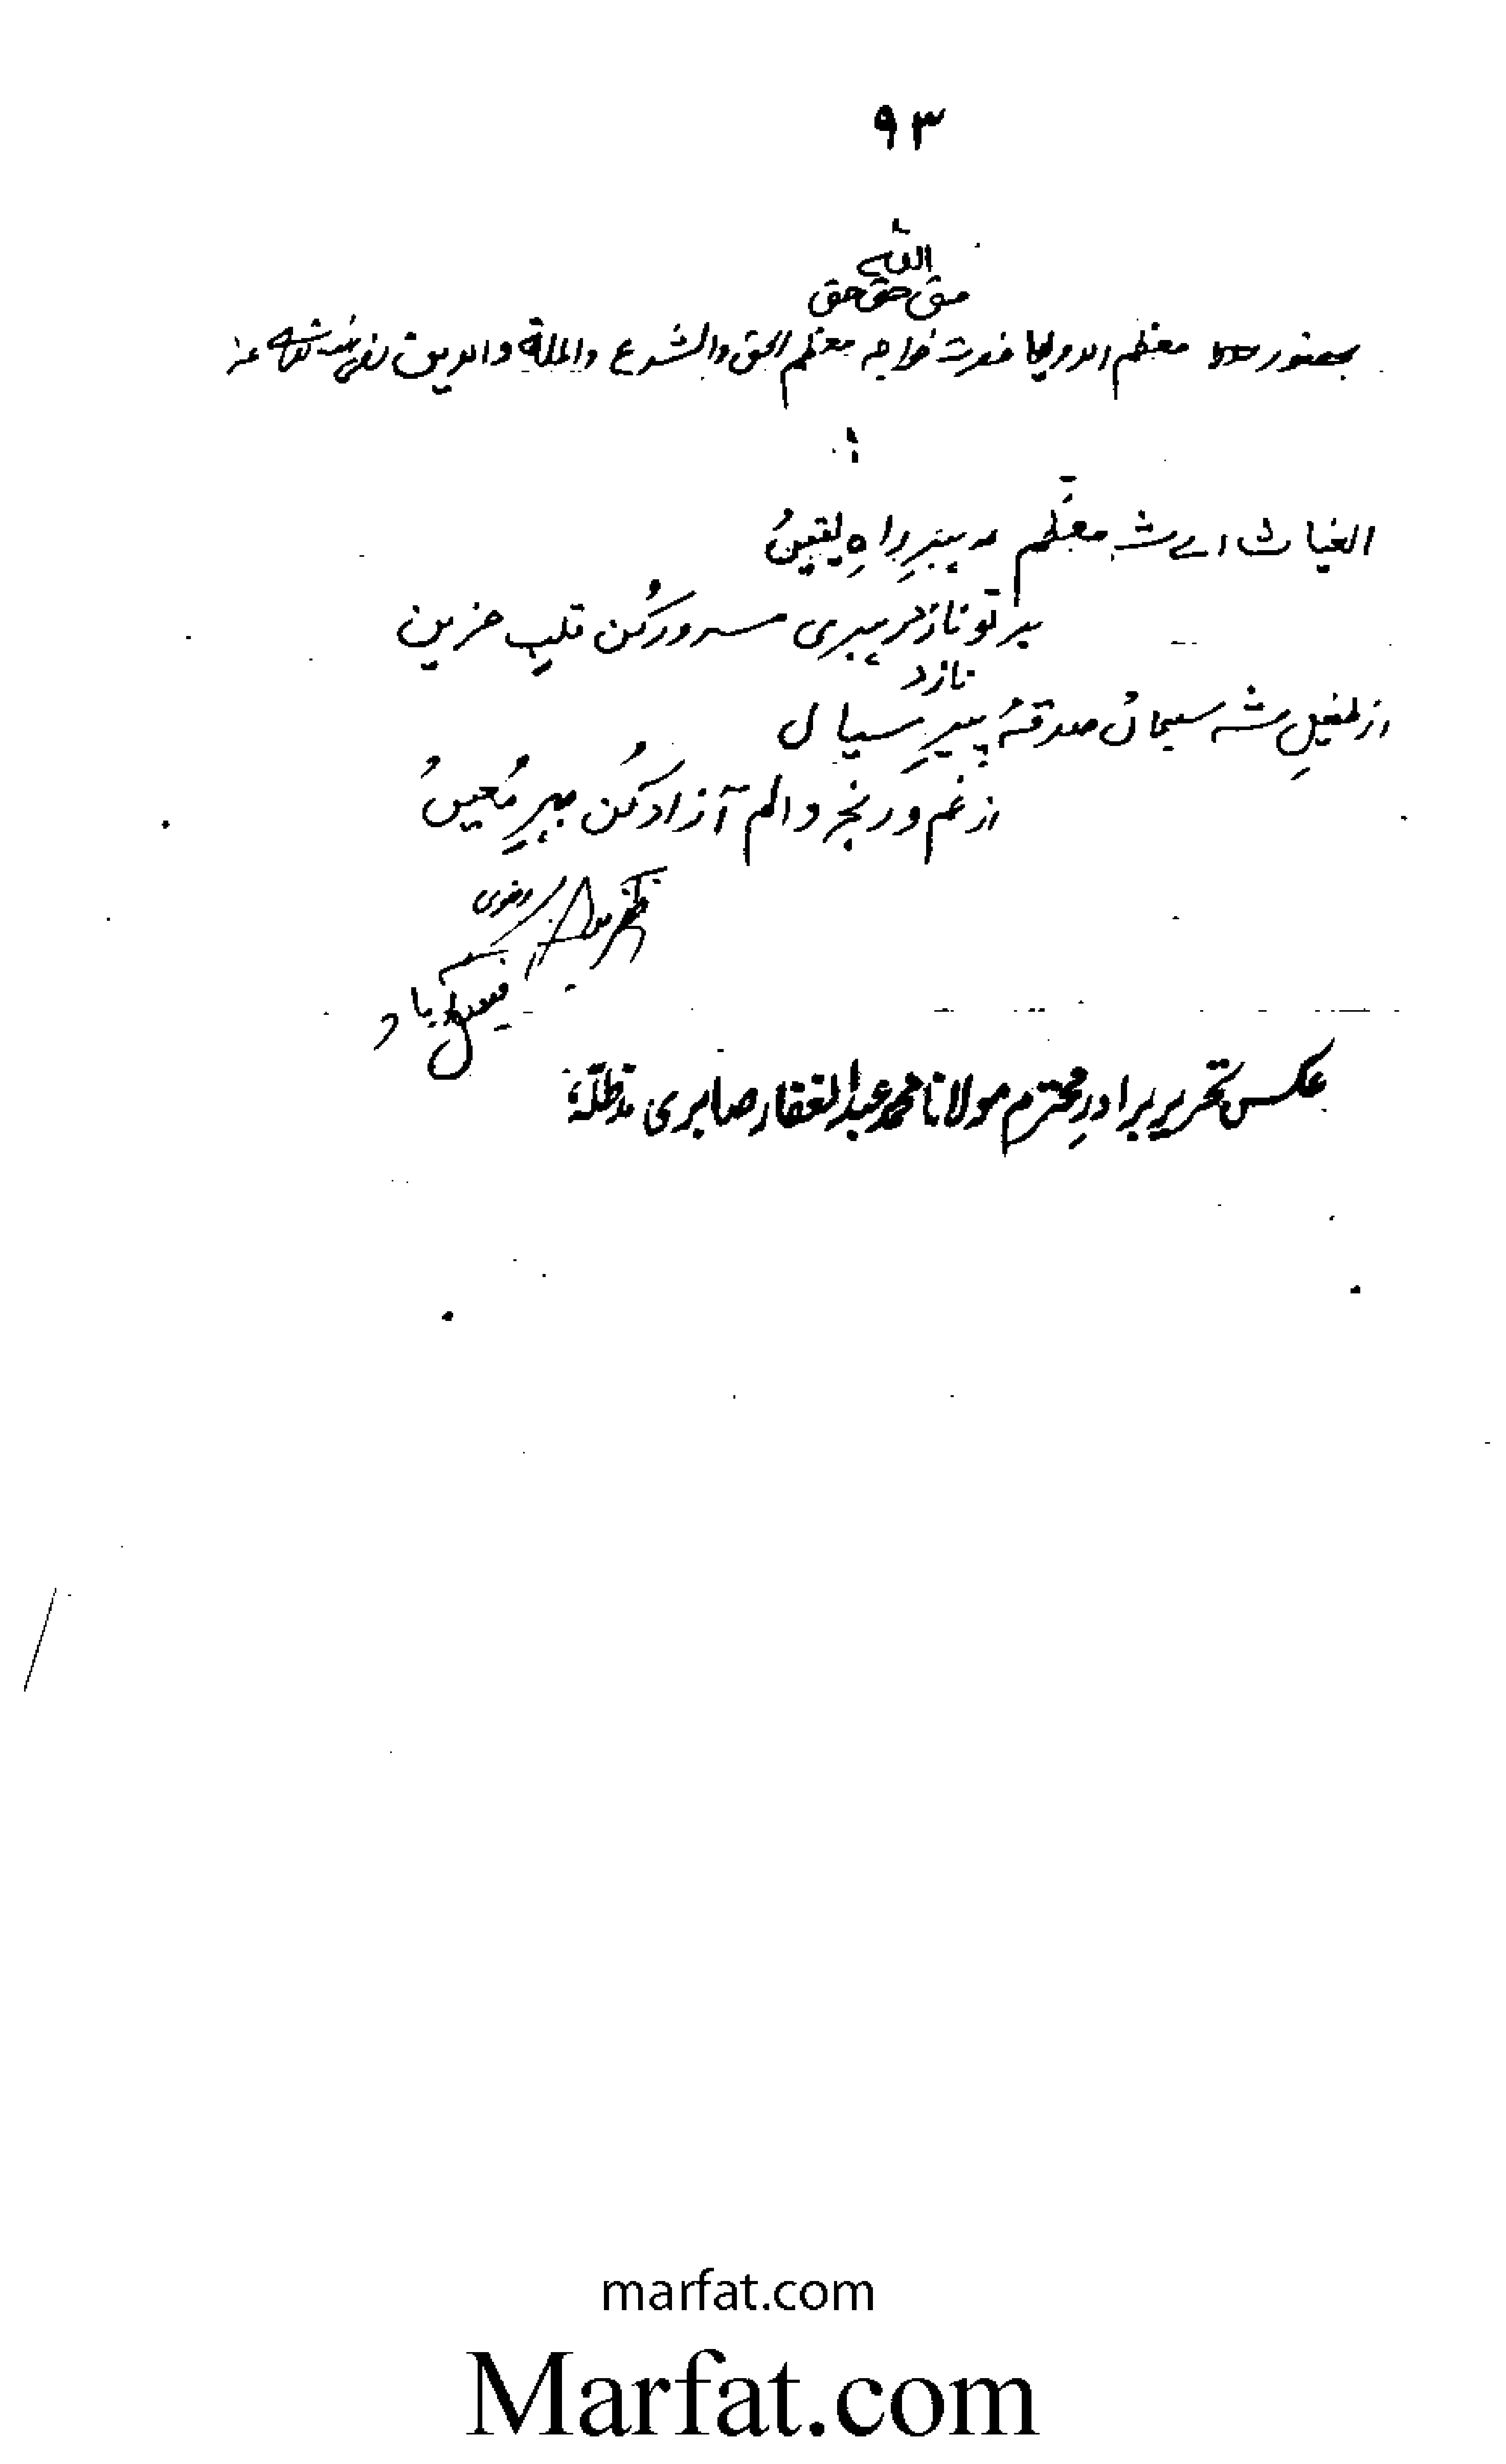 ۹۳
اللہ
حق حق حق
بحضور معظم الاولیا حضرت خواجہ معظم الحق والشرع والملة والدین
الغیاث اے شہ معظم رہبرِ راہِ یقیں
بر تو نازد رہبری مسرور کُن قلبِ حزین
نازد
از طفیلِ شہ سلیماں صدقۂ پیرِ سیال
از غم و رنج و الم آزاد کُن بہرِ مُعیں
رضوی
فیصل آباد
عکس تحریر برادرِ محترم مولانا محمد عبدالغفار صابری مدظلّہٗ
marfat.com
Marfat.com